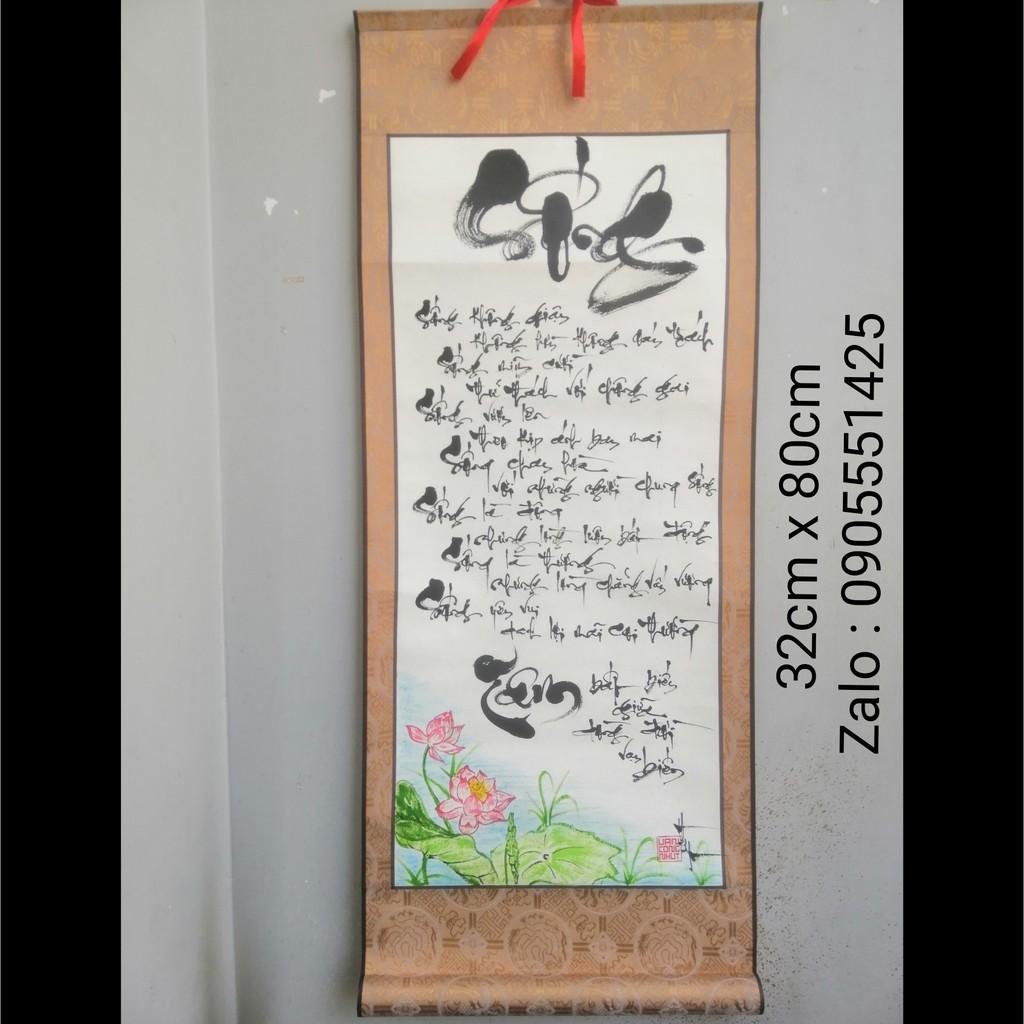 Sống
Sống không giận
không hờn không oán trách
Sống mỉm cười
thử thách với chông gai
Sống vươn lên
theo kịp ánh ban mai
Sống chan hòa
với những người chung sống
Sống là động
nhưng lòng luôn bất động
Sống là thương
nhưng lòng chẳng vấn vương
Sống yên vui
danh lợi mãi coi thường
Tâm
bất biến
giữa
dòng đời
vạn biến
VAN
CONG
NHUT
32cm x 80cm
Zalo : 0905551425